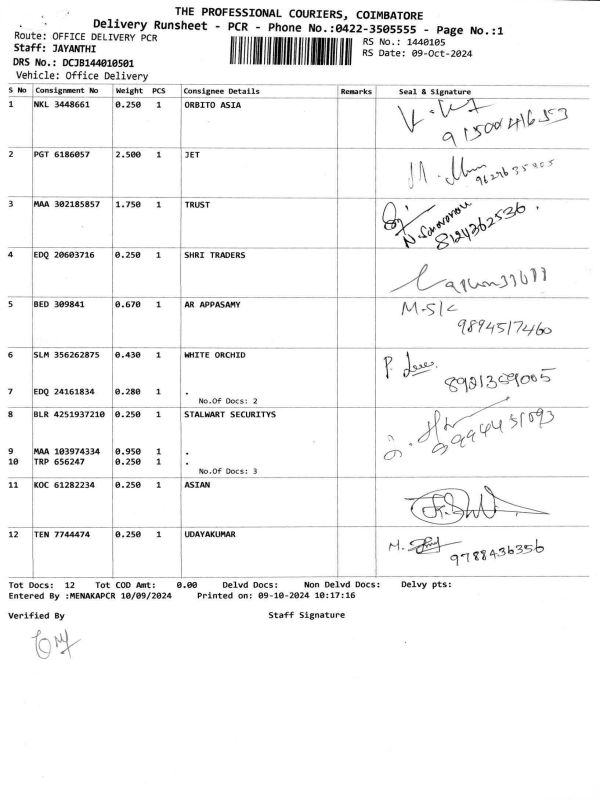 THE PROFESSIONAL COURIERS, COIMBATORE
Delivery Runsheet - PCR - Phone No.:0422-3505555 - Page No.:1
Route: OFFICE DELIVERY PCR RS No.: 1440105
Staff: JAYANTHI RS Date: 09-Oct-2024
DRS No.: DCJB144010501
Vehicle: Office Delivery
S No Consignment No Weight PCS Consignee Details Remarks Seal & Signature
1 NKL 3448661 0.250 1 ORBITO ASIA
2 PGT 6186057 2.500 1 JET
3 MAA 302185857 1.750 1 TRUST
8124362536.
4 EDQ 20603716 0.250 1 SHRI TRADERS
5 BED 309841 0.670 1 AR APPASAMY
9894517460
6 SLM 356262875 0.430 1 WHITE ORCHID
8921359005
7 EDQ 24161834 0.280 1 .
No.Of Docs: 2
8 BLR 4251937210 0.250 1 STALWART SECURITYS
9 MAA 103974334 0.950 1 .
10 TRP 656247 0.250 1 .
No.Of Docs: 3
11 KOC 61282234 0.250 1 ASIAN
12 TEN 7744474 0.250 1 UDAYAKUMAR
9788436356
Tot Docs: 12 Tot COD Amt: 0.00 Delvd Docs: Non Delvd Docs: Delvy pts:
Entered By :MENAKAPCR 10/09/2024 Printed on: 09-10-2024 10:17:16
Verified By Staff Signature